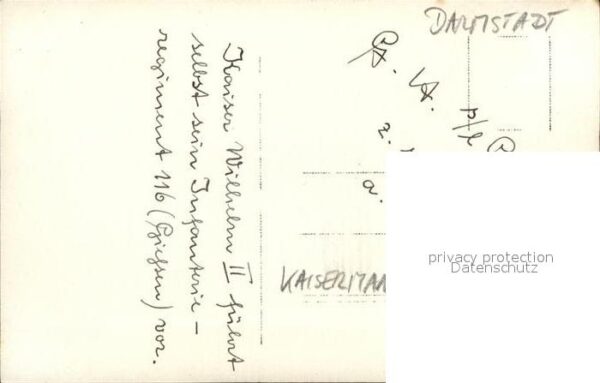 DARMSTADT
Kaiser Wilhelm II führt
selbst sein Infanterie-
regiment 116 (Giessen) vor.
privacy protection
Datenschutz